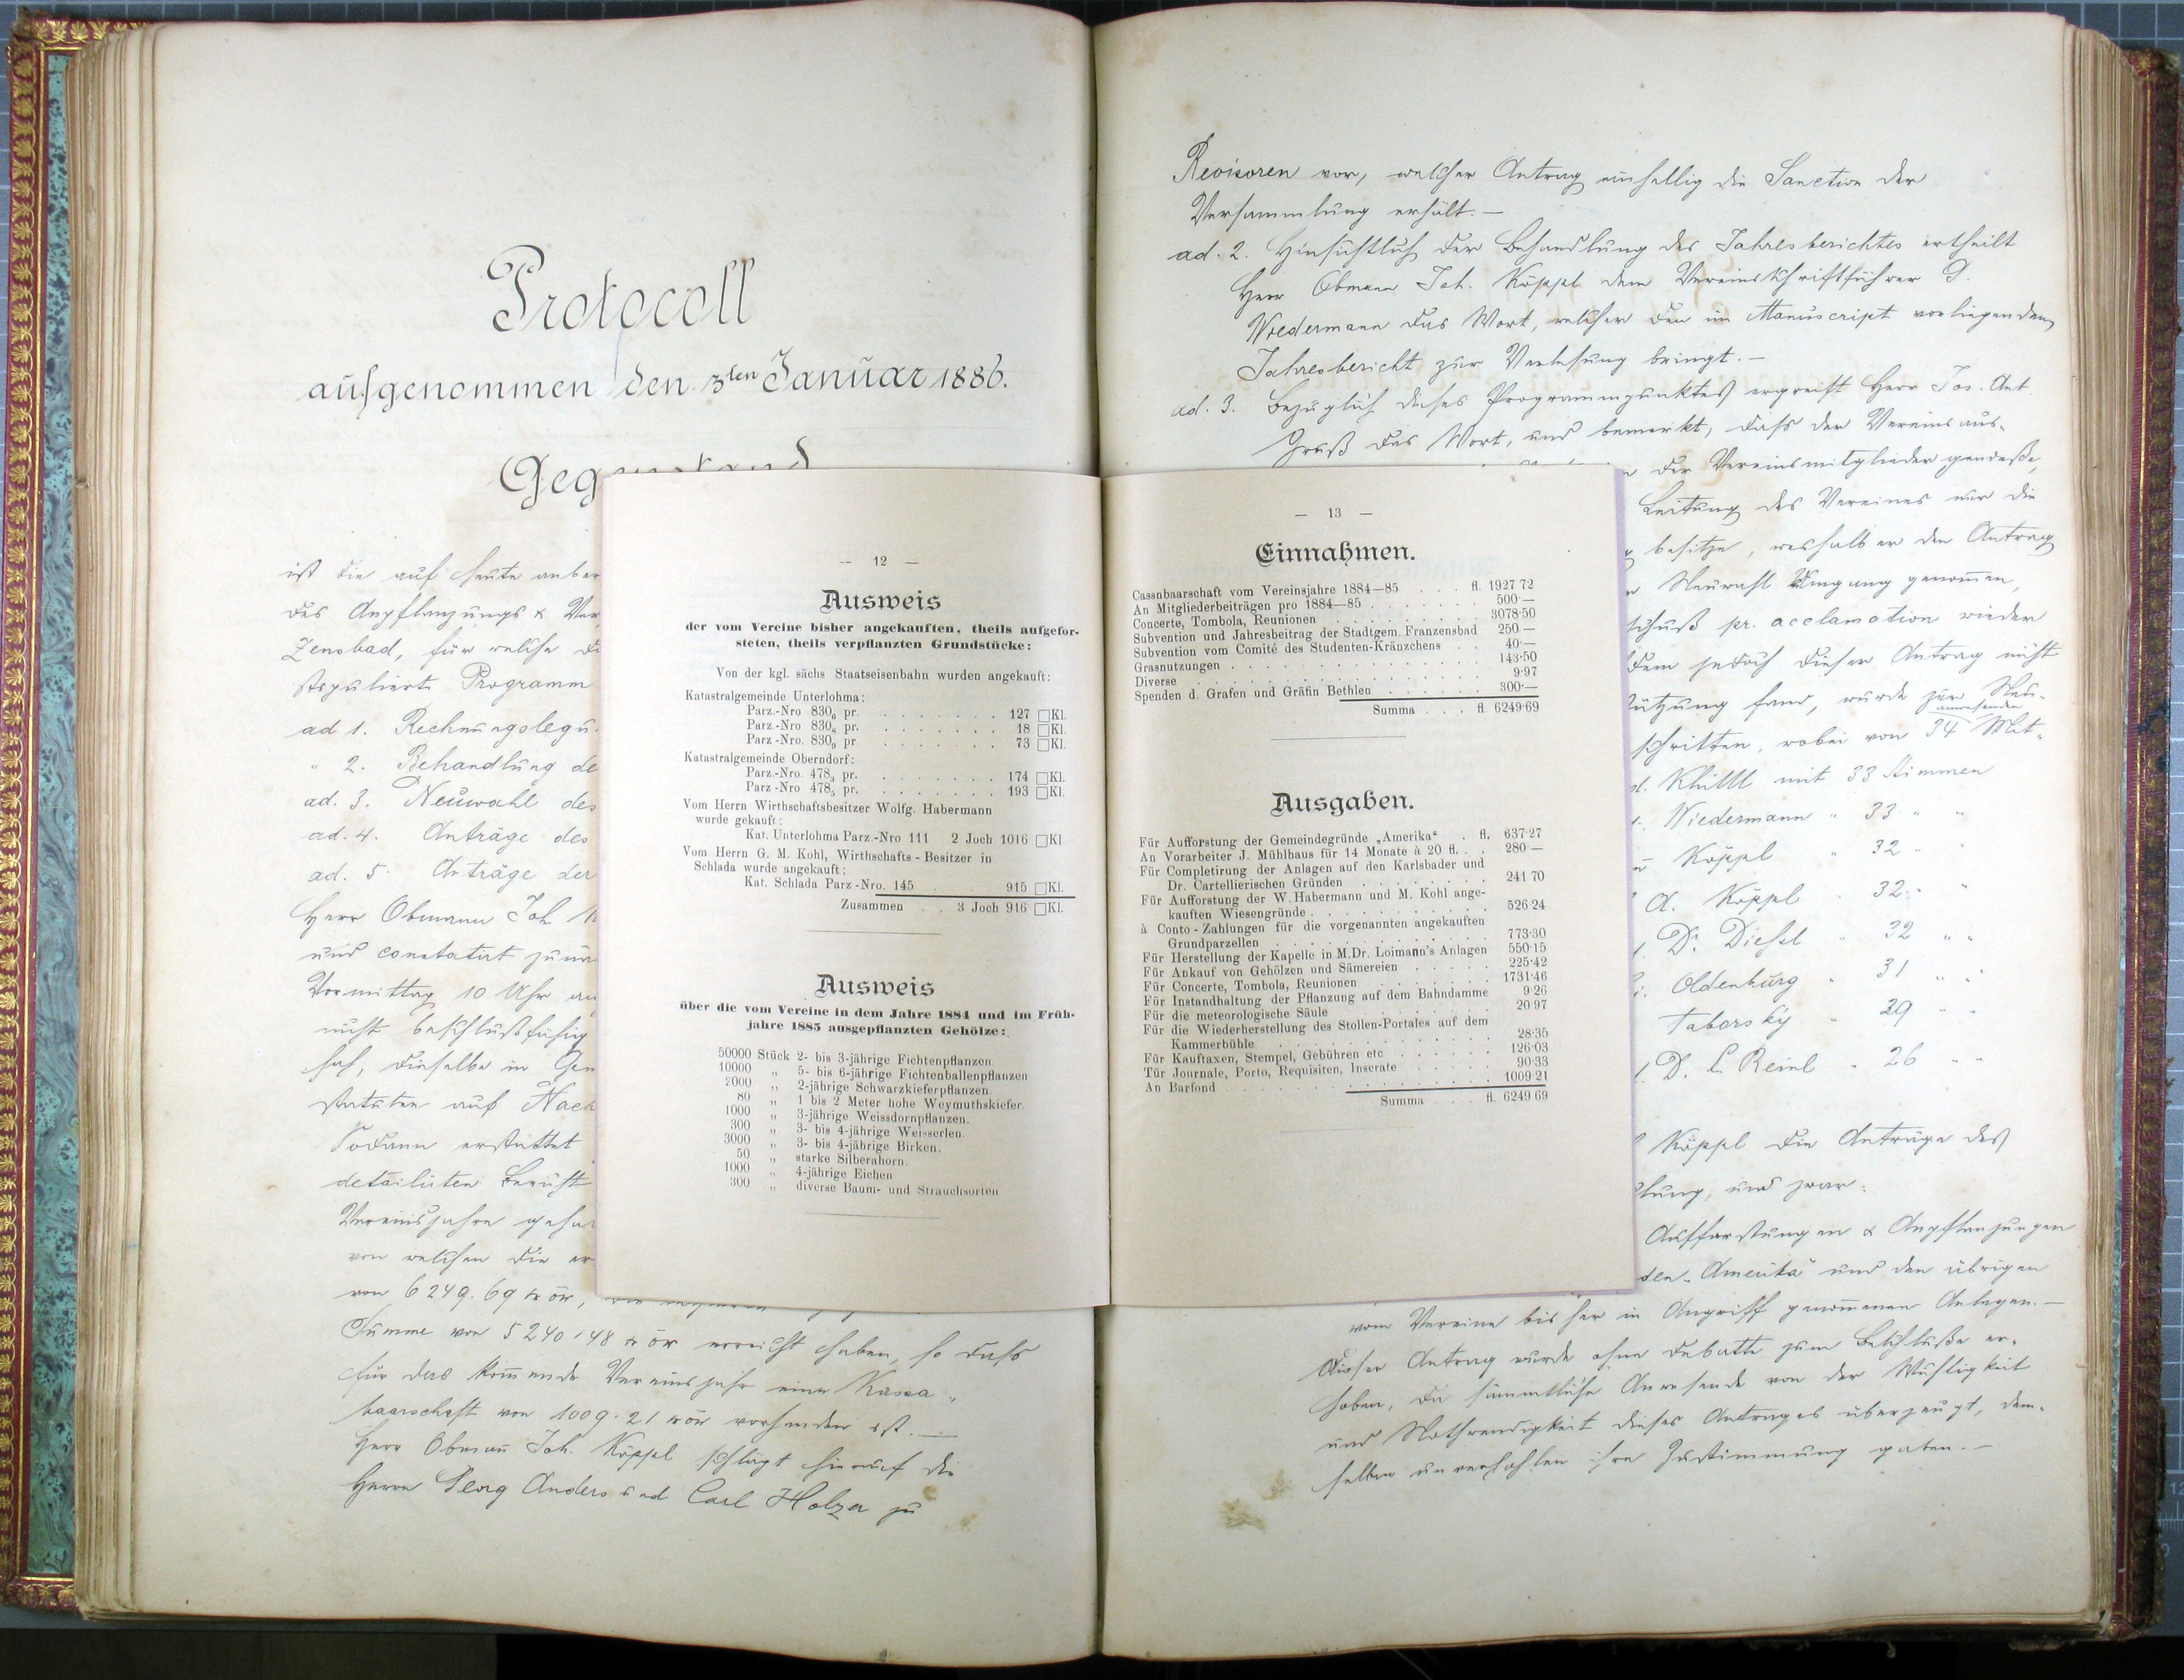 Protocoll
aufgenommen den 3ten Januar 1886.
Gegenstand
ist die auf heute anber
des Anpflanzungs & Ver
zensbad, für welche di
stipulierte Programm
ad 1. Rechnungslegu
" 2. Behandlung de
ad. 3. Neuwahl des
ad. 4. Anträge des
ad. 5. Anträge der
Herr Obmann Joh K
und constatirt zunä
Vormittag 10 Uhr an
nicht beschlußfähig
hat, dieselbe in Gem
statuten auf Nach
Sodann erstattet
detailirten Bericht
Vereinsjahre geha
von welchen die er
von 6249.69 kr öw,
Summe von 5240.48 kr öw erreicht haben, so dass
für das kommende Vereinsjahr eine Kassa-
baarschaft von 1009.21 kr öw vorhanden ist. —
Herr Obmann Joh. Köppl schlägt hierauf die
Herren Georg Anders und Carl Holzer zu
— 12 —
Ausweis
der vom Vereine bisher angekauften, theils aufgefor-
steten, theils verpflanzten Grundstücke:
Von der kgl. sächs Staatseisenbahn wurden angekauft:
Katastralgemeinde Unterlohma:
Parz.-Nro 830₆ pr. . . . . . . . 127 □Kl.
Parz.-Nro 830₈ pr. . . . . . . . 18 □Kl.
Parz -Nro. 830₉ pr . . . . . . . 73 □Kl.
Katastralgemeinde Oberndorf:
Parz.-Nro. 478₃ pr. . . . . . . . 174 □Kl.
Parz -Nro 478₅ pr. . . . . . . . 193 □Kl.
Vom Herrn Wirthschaftsbesitzer Wolfg. Habermann
wurde gekauft:
Kat. Unterlohma Parz.-Nro 111 2 Joch 1016 □Kl
Vom Herrn G. M. Kohl, Wirthschafts - Besitzer in
Schlada wurde angekauft:
Kat. Schlada Parz -Nro. 145 . . . 915 □Kl.
Zusammen . . 3 Joch 916 □Kl.
Ausweis
über die vom Vereine in dem Jahre 1884 und im Früh-
jahre 1885 ausgepflanzten Gehölze:
50000 Stück 2- bis 3-jährige Fichtenpflanzen.
10000 „ 5- bis 6-jährige Fichtenballenpflanzen
2000 „ 2-jährige Schwarzkieferpflanzen.
80 „ 1 bis 2 Meter hohe Weymuthskiefer.
1000 „ 3-jährige Weissdornpflanzen.
300 „ 3- bis 4-jährige Weisserlen.
3000 „ 3- bis 4-jährige Birken.
50 „ starke Silberahorn.
1000 „ 4-jährige Eichen
300 „ diverse Baum- und Strauchsorten
— 13 —
Einnahmen.
Cassabaarschaft vom Vereinsjahre 1884—85 . . . fl. 1927 72
An Mitgliederbeiträgen pro 1884—85 . . . . . . . 500·—
Concerte, Tombola, Reunionen . . . . . . . . . 3078·50
Subvention und Jahresbeitrag der Stadtgem. Franzensbad 250 —
Subvention vom Comité des Studenten-Kränzchens . . 40 —
Grasnutzungen . . . . . . . . . . . . . . 143·50
Diverse . . . . . . . . . . . . . . . . 9·97
Spenden d. Grafen und Gräfin Bethlen . . . . . . 300·—
Summa . . . fl 6249·69
Ausgaben.
Für Aufforstung der Gemeindegründe „Amerika“ . fl. 637·27
An Vorarbeiter J. Mühlhaus für 14 Monate à 20 fl. . . 280 —
Für Completirung der Anlagen auf den Karlsbader und
Dr. Cartellierischen Gründen . . . . . . . . 241 70
Für Aufforstung der W. Habermann und M. Kohl ange-
kauften Wiesengründe . . . . . . . . . . . 526·24
à Conto - Zahlungen für die vorgenannten angekauften
Grundparzellen . . . . . . . . . . . . . 773·30
Für Herstellung der Kapelle in M.Dr. Loimann's Anlagen 550·15
Für Ankauf von Gehölzen und Sämereien . . . . . 225·42
Für Concerte, Tombola, Reunionen . . . . . . . 1731·46
Für Instandhaltung der Pflanzung auf dem Bahndamme 9·26
Für die meteorologische Säule . . . . . . . . 20·97
Für die Wiederherstellung des Stollen-Portales auf dem
Kammerbühle . . . . . . . . . . . . . 28·35
Für Kauftaxen, Stempel, Gebühren etc . . . . . . 126·03
Tür Journale, Porto, Requisiten, Inserate . . . . . 90·33
An Barfond . . . . . . . . . . . . . . 1009·21
Summa . . . fl. 6249 69
Revisoren vor, welcher Antrag einhellig die Sanction der
Versammlung erhält. —
ad. 2. Hinsichtlich der Behandlung des Jahresberichtes ertheilt
Herr Obmann Joh. Köppl dem Vereinsschriftführer G.
Wiedermann das Wort, welcher den im Manuscript vorliegenden
Jahresbericht zur Verlesung bringt. —
ad. 3. Bezüglich dieses Programmpunktes ergreift Herr Jos. Ant.
Gruß das Wort, und bemerkt, dass der Vereinsaus-
der Vereinsmitglieder genieße,
Leitung des Vereines nur die
besitze, weshalb er den Antrag
Neuwahl Umgang genommen,
schuß pr. acclamation wieder
dem jedoch dieser Antrag nicht
stützung fand, wurde zur Neu-
schritten, wobei von 34 anwesenden Mit-
d. Khittl mit 33 Stimmen
Wiedermann " 33 " "
Köppl " 32 " "
A. Köppl " 32 " "
Dr. Diessl " 32 " "
Oldenburg " 31 " "
Taborsky " 29 " "
D. L. Reinl " 26 " "
Köppl die Anträge des
lung, und zwar:
Aufforstungen & Anpflanzungen
den „Amerika“ und den übrigen
vom Vereine bisher in Angriff genommenen Anlagen. —
Dieser Antrag wurde ohne Debatte zum Beschluße er-
hoben, da sämmtliche Anwesende von der Wichtigkeit
und Nothwendigkeit dieses Antrages überzeugt, dem-
selben unverhohlen ihre Zustimmung gaben. —